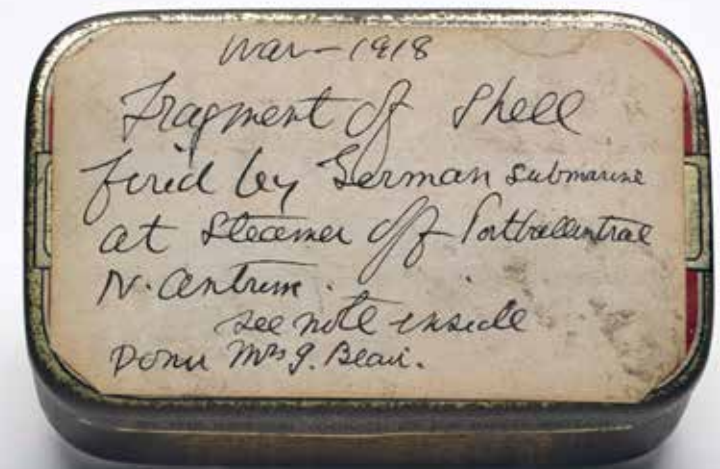 War - 1918
Fragment of Shell
fired by German submarine
at Steamer off Portballintrae
N. Antrim.
see note inside
Donor Mrs J.